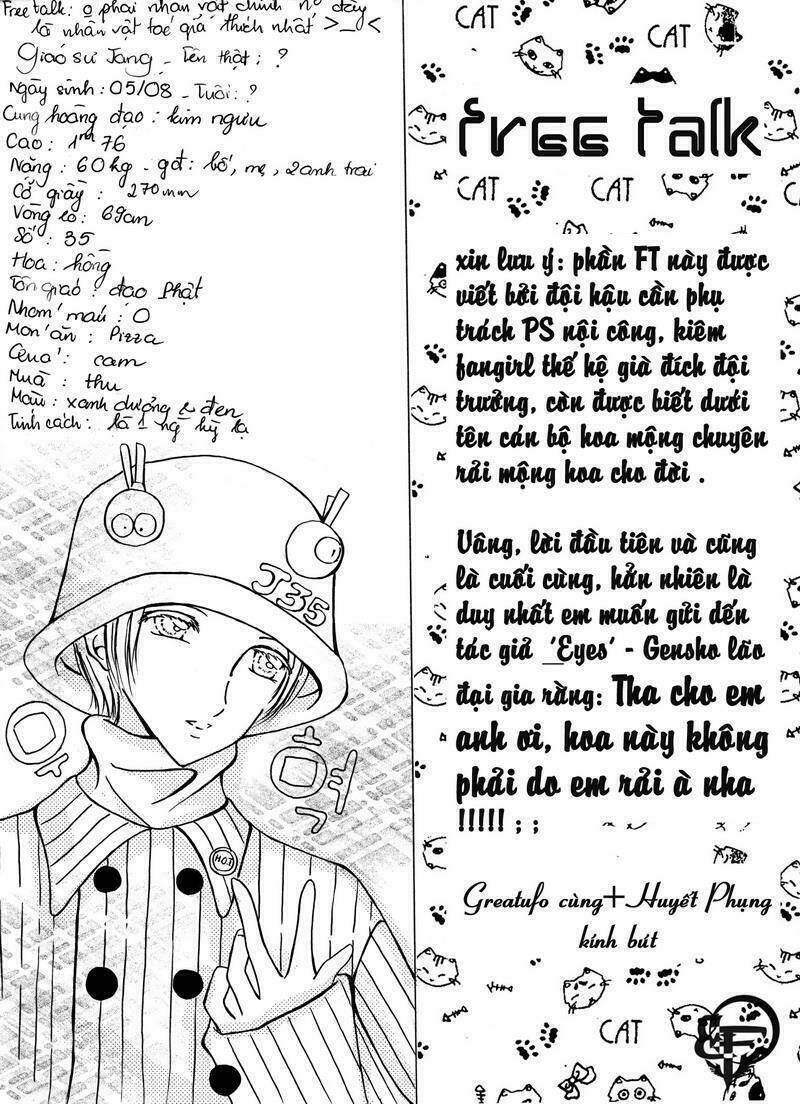 Free talk: o phải nhân vật chính n` đây
là nhân vật tác giả thích nhất >_<
Giáo sư Jang - Tên thật: ?
Ngày sinh: 05/08 - Tuổi: ?
Cung hoàng đạo: kim ngưu
Cao: 1m76
Nặng: 60kg - gđ: bố, mẹ, 2 anh trai
Cỡ giầy: 270mm
Vòng eo: 69cm
Số: 35
Hoa: hồng
Tôn giáo: đạo Phật
Nhóm máu: O
Món ăn: Pizza
Quả: cam
Mùa: thu
Màu: xanh dương & đen
Tính cách: là 1 ng` kỳ lạ
J35
H.O.T
CAT
CAT
free talk
CAT
CAT
xin lưu ý: phần FT này được
viết bởi đội hậu cần phụ
trách PS nội công, kiêm
fangirl thế hệ già đích đội
trưởng, còn được biết dưới
tên cán bộ hoa mộng chuyên
rải mộng hoa cho đời .
Vâng, lời đầu tiên và cũng
là cuối cùng, hẳn nhiên là
duy nhất em muốn gửi đến
tác giả 'Eyes' - Gensho lão
đại gia rằng: Tha cho em
anh ơi, hoa này không
phải do em rải à nha
!!!!! ; ;
Greatufo cùng+Huyết Phụng
kính bút
CAT